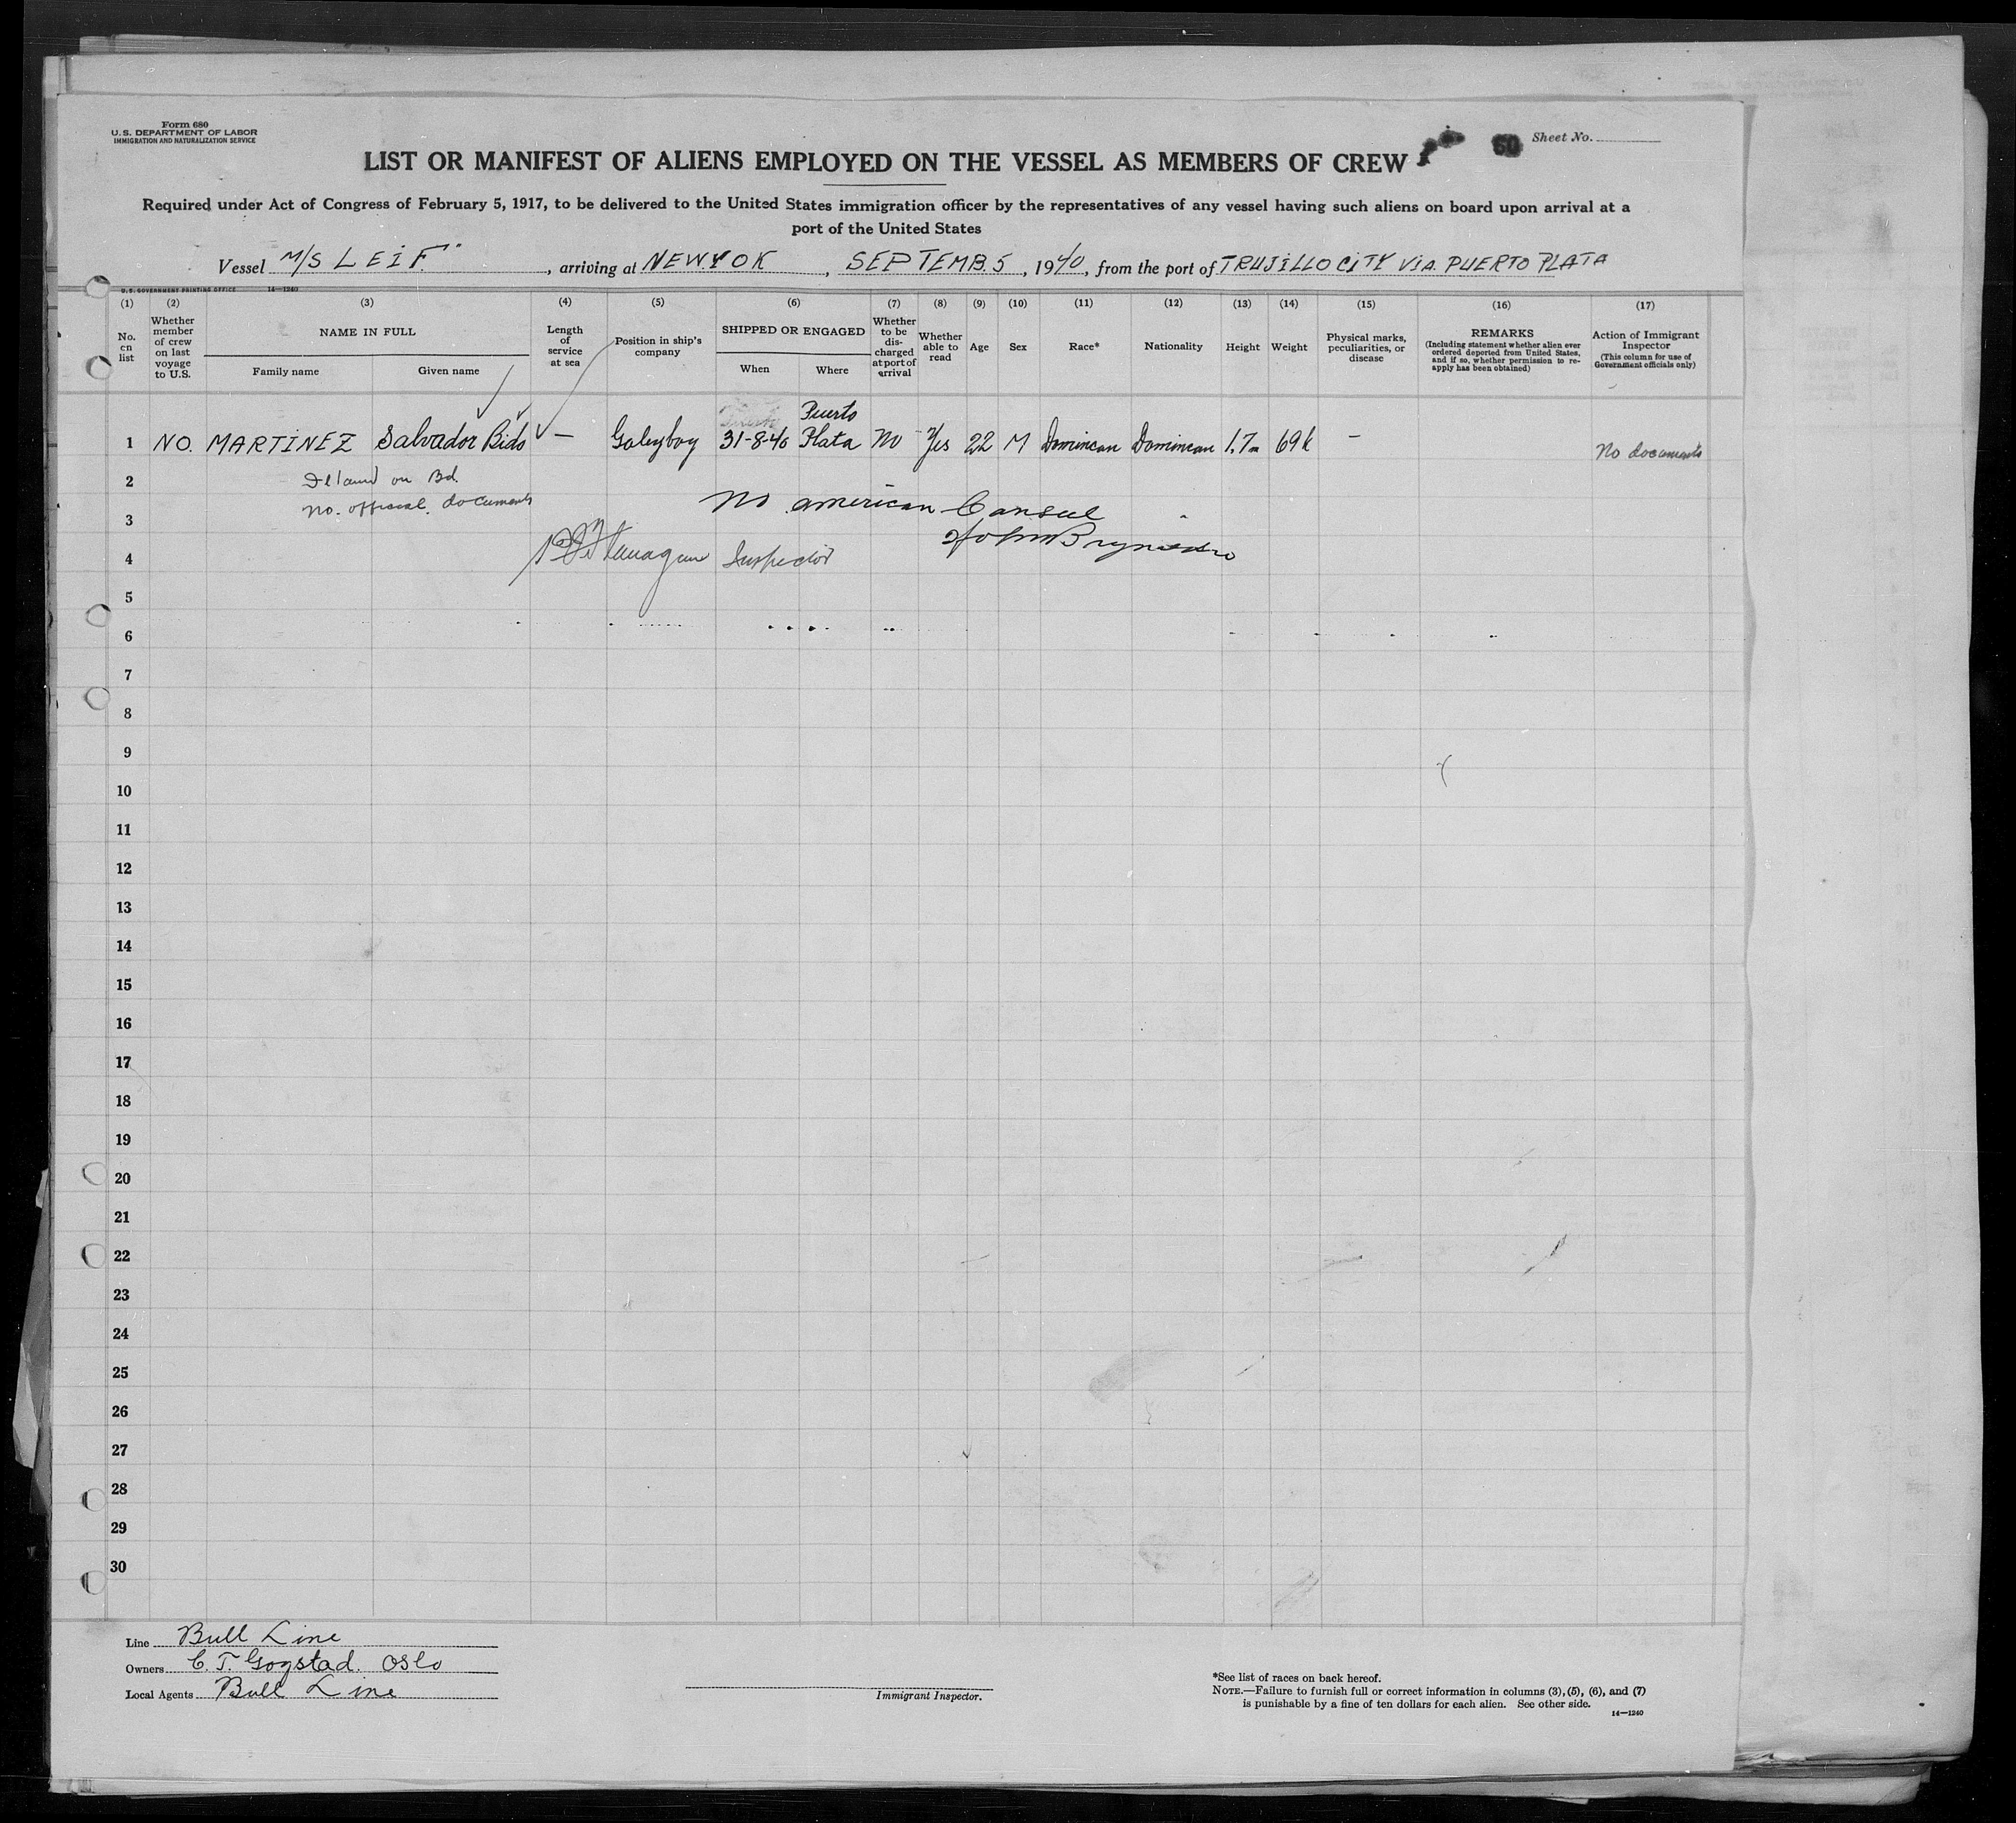 Form 680
U. S. DEPARTMENT OF LABOR
IMMIGRATION AND NATURALIZATION SERVICE
60
Sheet No.
LIST OR MANIFEST OF ALIENS EMPLOYED ON THE VESSEL AS MEMBERS OF CREW
Required under Act of Congress of February 5, 1917, to be delivered to the United States immigration officer by the representatives of any vessel having such aliens on board upon arrival at a
port of the United States
Vessel M/S LEIF." , arriving at NEWYOK , SEPTEMB. 5 , 1940, from the port of TRUJILLO CITY VIA. PUERTO PLATA
U. S. GOVERNMENT PRINTING OFFICE 14—1240
(1) (2) (3) (4) (5) (6) (7) (8) (9) (10) (11) (12) (13) (14) (15) (16) (17)
No. on list
Whether member of crew on last voyage to U.S.
NAME IN FULL
Family name
Given name
Length of service at sea
Position in ship's company
SHIPPED OR ENGAGED
When
Where
Whether to be discharged at port of arrival
Whether able to read
Age
Sex
Race*
Nationality
Height
Weight
Physical marks, peculiarities, or disease
REMARKS
(Including statement whether alien ever ordered deported from United States, and if so, whether permission to reapply has been obtained)
Action of Immigrant Inspector
(This column for use of Government officials only)
1 NO. MARTINEZ Salvador Bido — Galeyboy 31-8-40 Puerto Plata No Yes 22 M Dominican Dominican 1.7m 69k — No documents
2 on Bd.
No. official. documents
3 No american Consul
4 Inspector
5
6
7
8
9
10
11
12
13
14
15
16
17
18
19
20
21
22
23
24
25
26
27
28
29
30
Line Bull Line
Owners C. T. Gogstad. Oslo
Local Agents Bull Line
Immigrant Inspector.
*See list of races on back hereof.
NOTE.—Failure to furnish full or correct information in columns (3), (5), (6), and (7)
is punishable by a fine of ten dollars for each alien. See other side.
14—1240